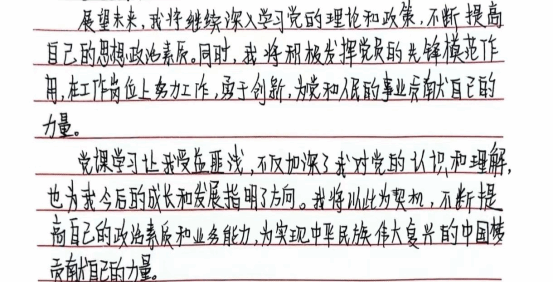 展望未来,我将继续深入学习党的理论和政策,不断提高
自己的思想政治素质。同时,我将积极发挥党员的先锋模范作
用,在工作岗位上努力工作,勇于创新,为党和人民的事业贡献自己的
力量。
党课学习让我受益匪浅,不仅加深了我对党的认识和理解,
也为我今后的成长和发展指明了方向。我将以此为契机,不断提
高自己的政治素质和业务能力,为实现中华民族伟大复兴的中国梦
贡献自己的力量。